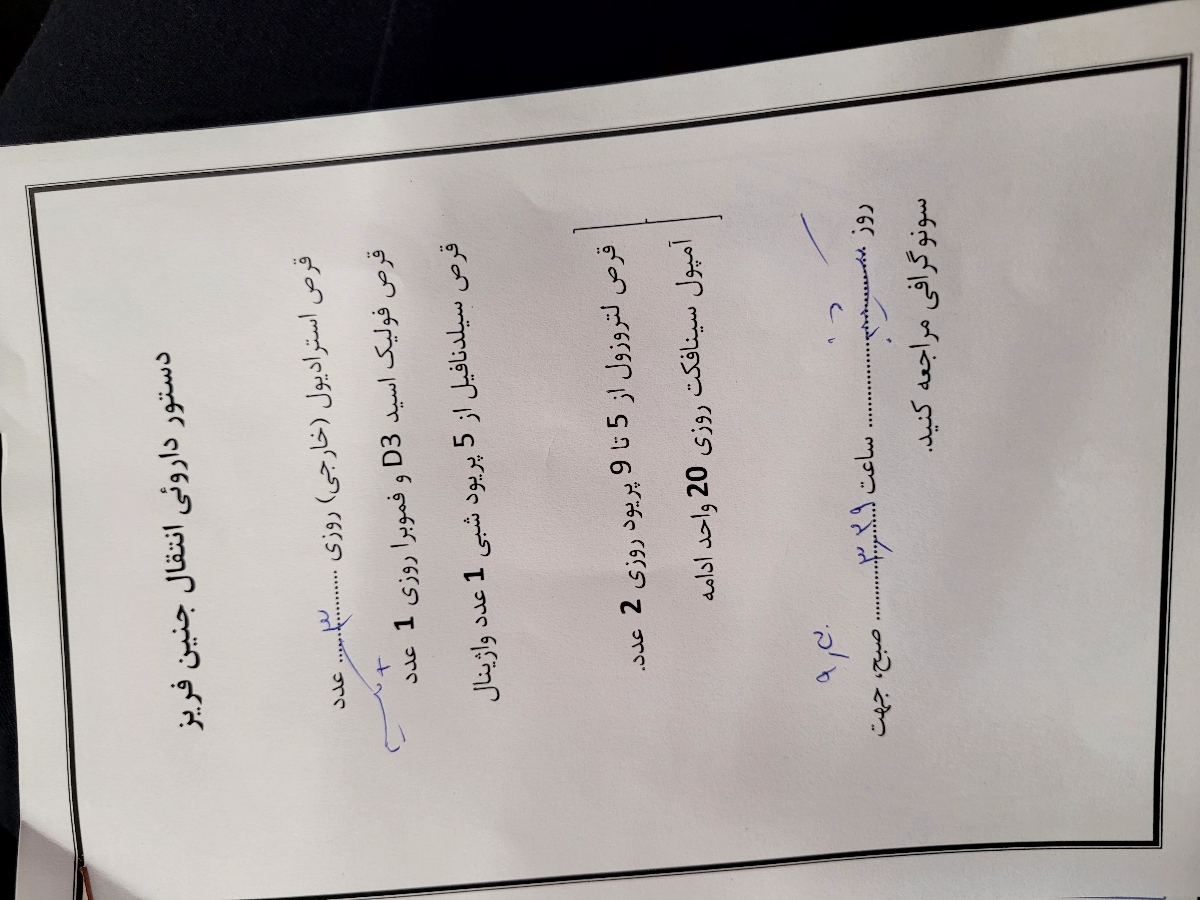 دستور داروئی انتقال جنین فریز
قرص استرادیول (خارجی) روزی ......۳...... عدد
قرص فولیک اسید D3 و فموبرا روزی 1 عدد
قرص سیلدنافیل از 5 پریود شبی 1 عدد واژینال
قرص لتروزول از 5 تا 9 پریود روزی 2 عدد.
آمپول سینافکت روزی 20 واحد ادامه
روز ........................ ساعت ........................ صبح، جهت
سونوگرافی مراجعه کنید.